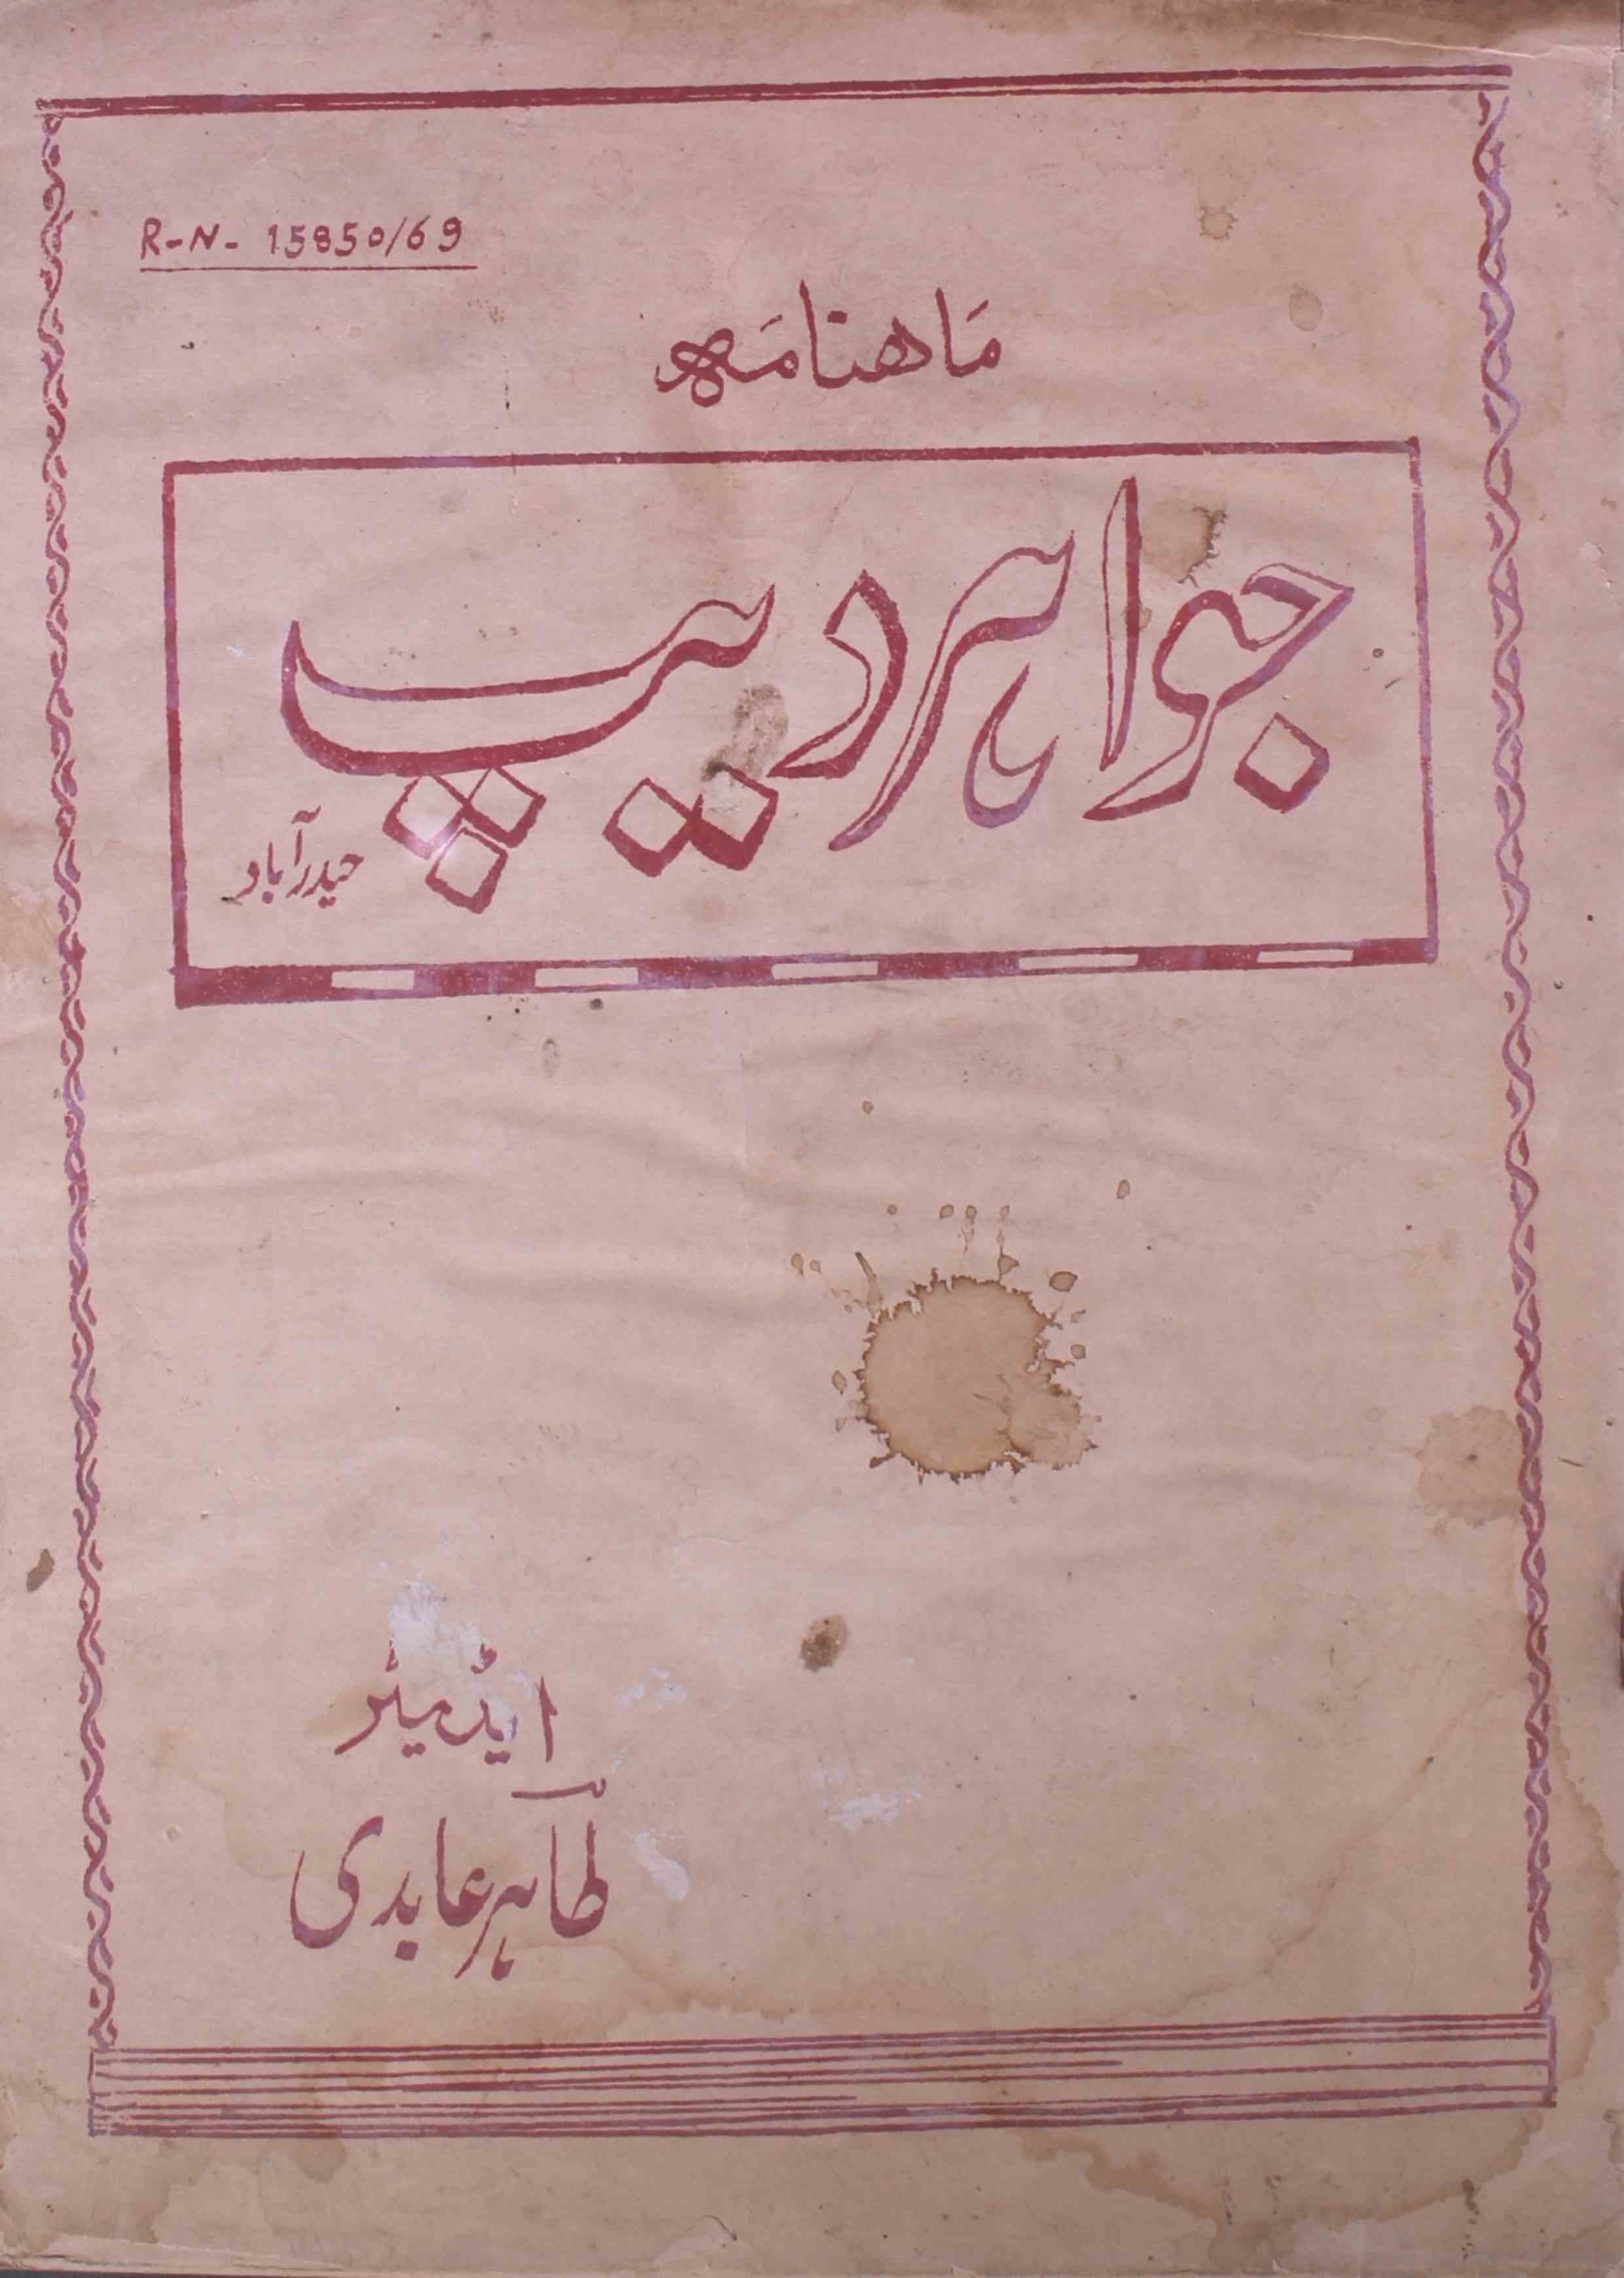 R-N- 15850/69
ماھنامہ
جواہر دیپ
حیدرآباد
ایڈیٹر
طاہر عابدی